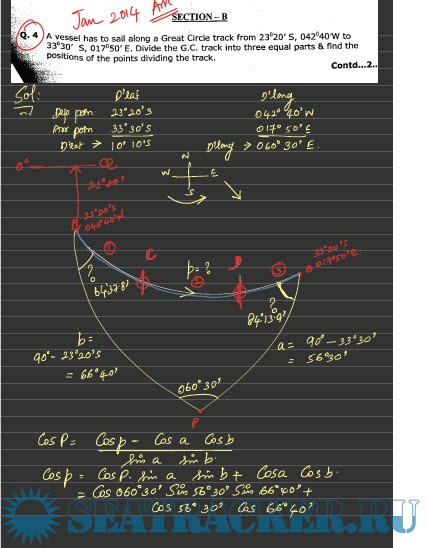 Jan 2014 AM
SECTION – B
Q. 4 A vessel has to sail along a Great Circle track from 23⁰20' S, 042⁰40'W to
33⁰30' S, 017⁰50' E. Divide the G.C. track into three equal parts & find the
positions of the points dividing the track.
Contd...2..
Sol:
D'lat D'long
Dep posn 23°20'S 042° 40'W
Arr posn 33°30'S 017° 50'E
D'lat → 10° 10'S D'long → 060° 30' E.
0° Q
23°20'
N
W E
S
23°20'S
042°40'W
A
① C
p = ?
②
D
③
B
33°30'S
017°50'E
?
64°37.8'
?
84°13.9'
b =
90° - 23°20'S
= 66°40'
a = 90° - 33°30'
= 56°30'
060°30'
P
Cos P = Cos p - Cos a Cos b
Sin a Sin b
Cos p = Cos P. Sin a Sin b + Cos a Cos b.
= Cos 060°30' Sin 56°30' Sin 66°40' +
Cos 56°30' Cos 66°40'
SEATRACKER.RU